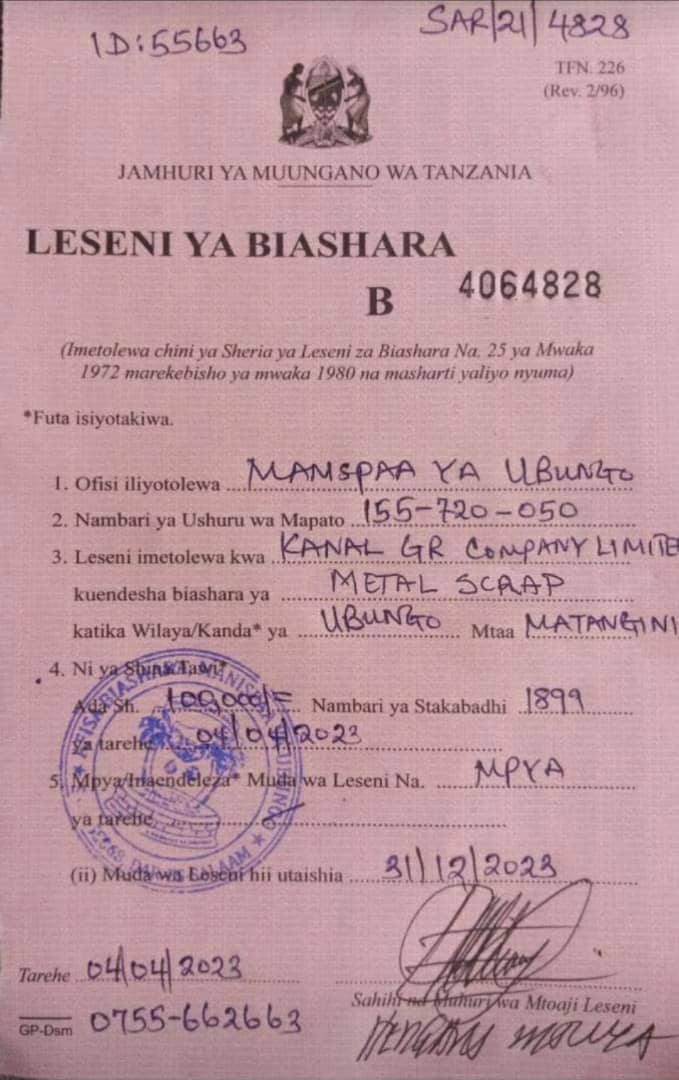 ID:55663
SAR/21/4828
TFN. 226
(Rev. 2/96)
JAMHURI YA MUUNGANO WA TANZANIA
LESENI YA BIASHARA
B 4064828
(Imetolewa chini ya Sheria ya Leseni za Biashara Na. 25 ya Mwaka
1972 marekebisho ya mwaka 1980 na masharti yaliyo nyuma)
*Futa isiyotakiwa.
1. Ofisi iliyotolewa MANSPAA YA UBUNGO
2. Nambari ya Ushuru wa Mapato 155-720-050
3. Leseni imetolewa kwa KANAL GR COMPANY LIMITE
kuendesha biashara ya METAL SCRAP
katika Wilaya/Kanda* ya UBUNGO Mtaa MATANGINI
4. Ni ya Shina Tawi*
Ada Sh. 100,000/= Nambari ya Stakabadhi 1899
ya tarehe 04/04/2023
5. Mpya/Inaendeleza* Muda wa Leseni Na. MPYA
ya tarehe
(ii) Muda wa Leseni hii utaishia 31/12/2023
Tarehe 04/04/2023
Sahihi na Muhuri wa Mtoaji Leseni
GP-Dsm 0755-662663